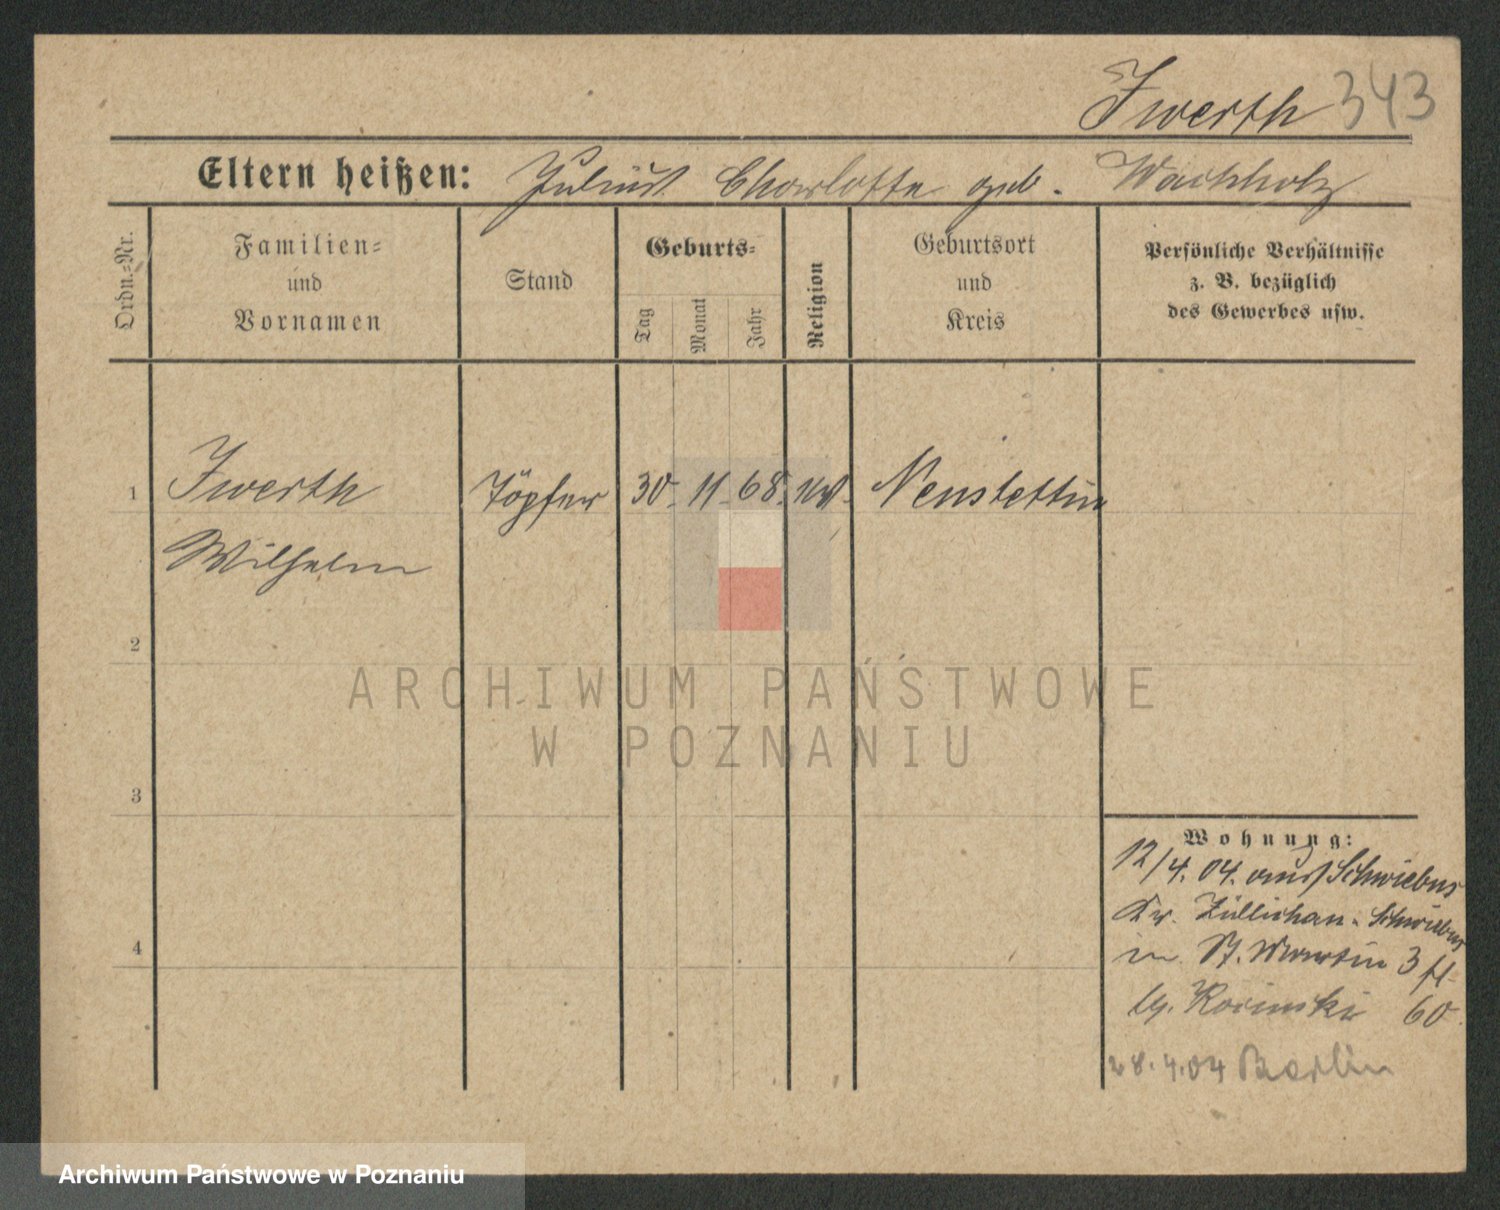 Iwerth 343
Eltern heißen: Julius Charlotte geb. Wachholz
Ordn.-Nr.
Familien-
und
Vornamen
Stand
Geburts-
Tag
Monat
Jahr
Religion
Geburtsort
und
Kreis
Persönliche Verhältnisse
z. B. bezüglich
des Gewerbes usw.
1 Iwerth Töpfer 30. 11. 68. Neustettin
Wilhelm
2
3
4
Wohnung:
12/4. 04. aus Schwiebus
Kr. Züllichau-Schwiebus
in St. Martin 3
60
28.4.04 Berlin
ARCHIWUM PAŃSTWOWE
W POZNANIU
Archiwum Państwowe w Poznaniu